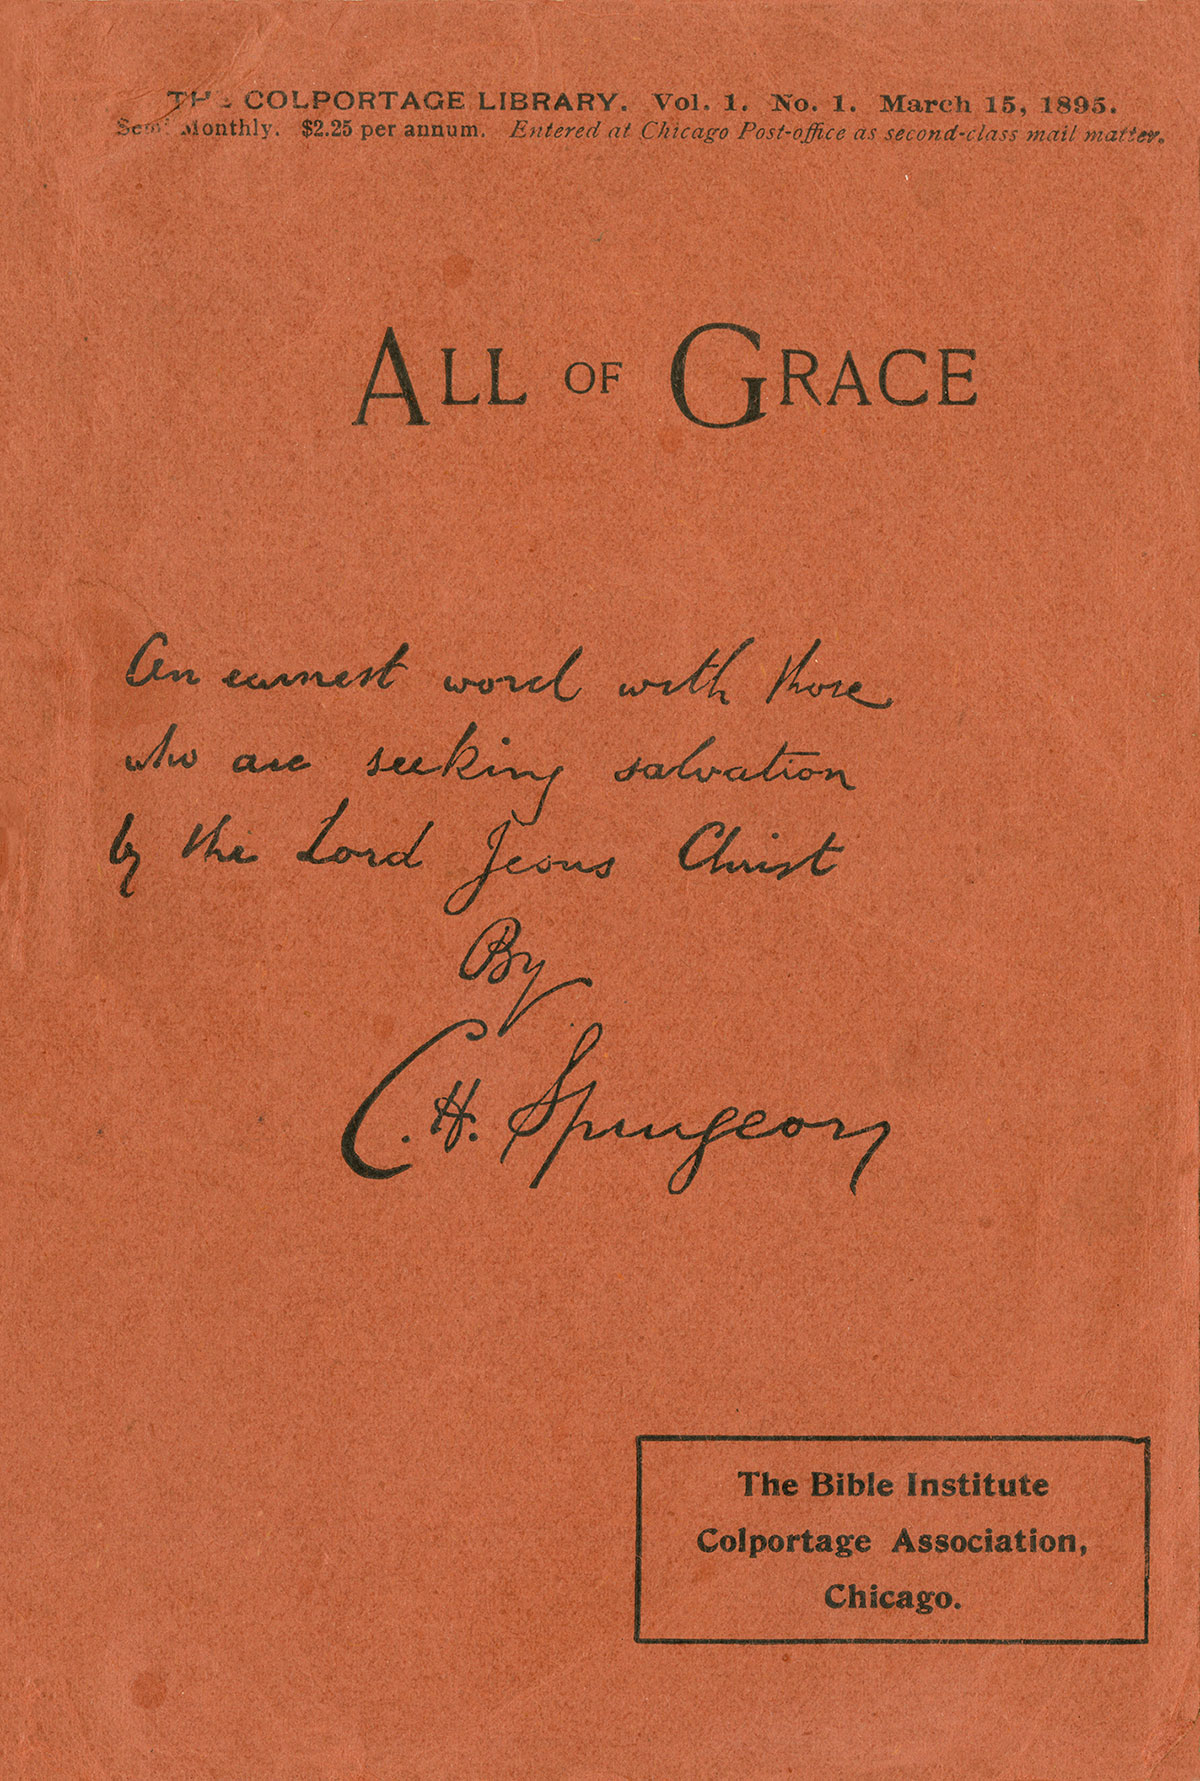 THE COLPORTAGE LIBRARY. Vol. 1. No. 1. March 15, 1895.
Semi Monthly. $2.25 per annum. Entered at Chicago Post-office as second-class mail matter.
ALL OF GRACE
An earnest word with those
who are seeking salvation
by the Lord Jesus Christ
By
C. H. Spurgeon
The Bible Institute
Colportage Association,
Chicago.